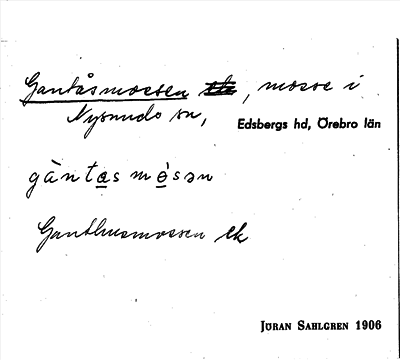 Gantåsmossen, mosse i
Nysunds sn,
Edsbergs hd, Örebro län
gànta̲s mo̲̍sən
Ganthusmossen ek
JÖRAN SAHLGREN 1906